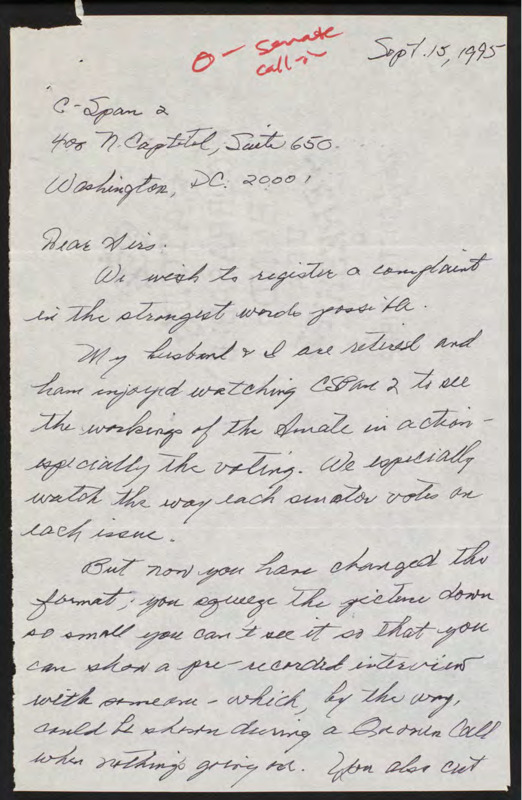 O - Senate
call-in
Sept. 15, 1995
C-Span 2
400 N. Capitol, Suite 650.
Washington, D.C. 20001
Dear Sirs:
We wish to register a complaint
in the strongest words possible.
My husband & I are retired and
have enjoyed watching CSPan 2 to see
the workings of the Senate in action -
especially the voting. We especially
watch the way each senator votes on
each issue.
But now you have changed the
format; you squeeze the picture down
so small you can't see it so that you
can show a pre-recorded interview
with someone - which, by the way,
could be shown during a Quorum Call
when nothing's going on. You also cut